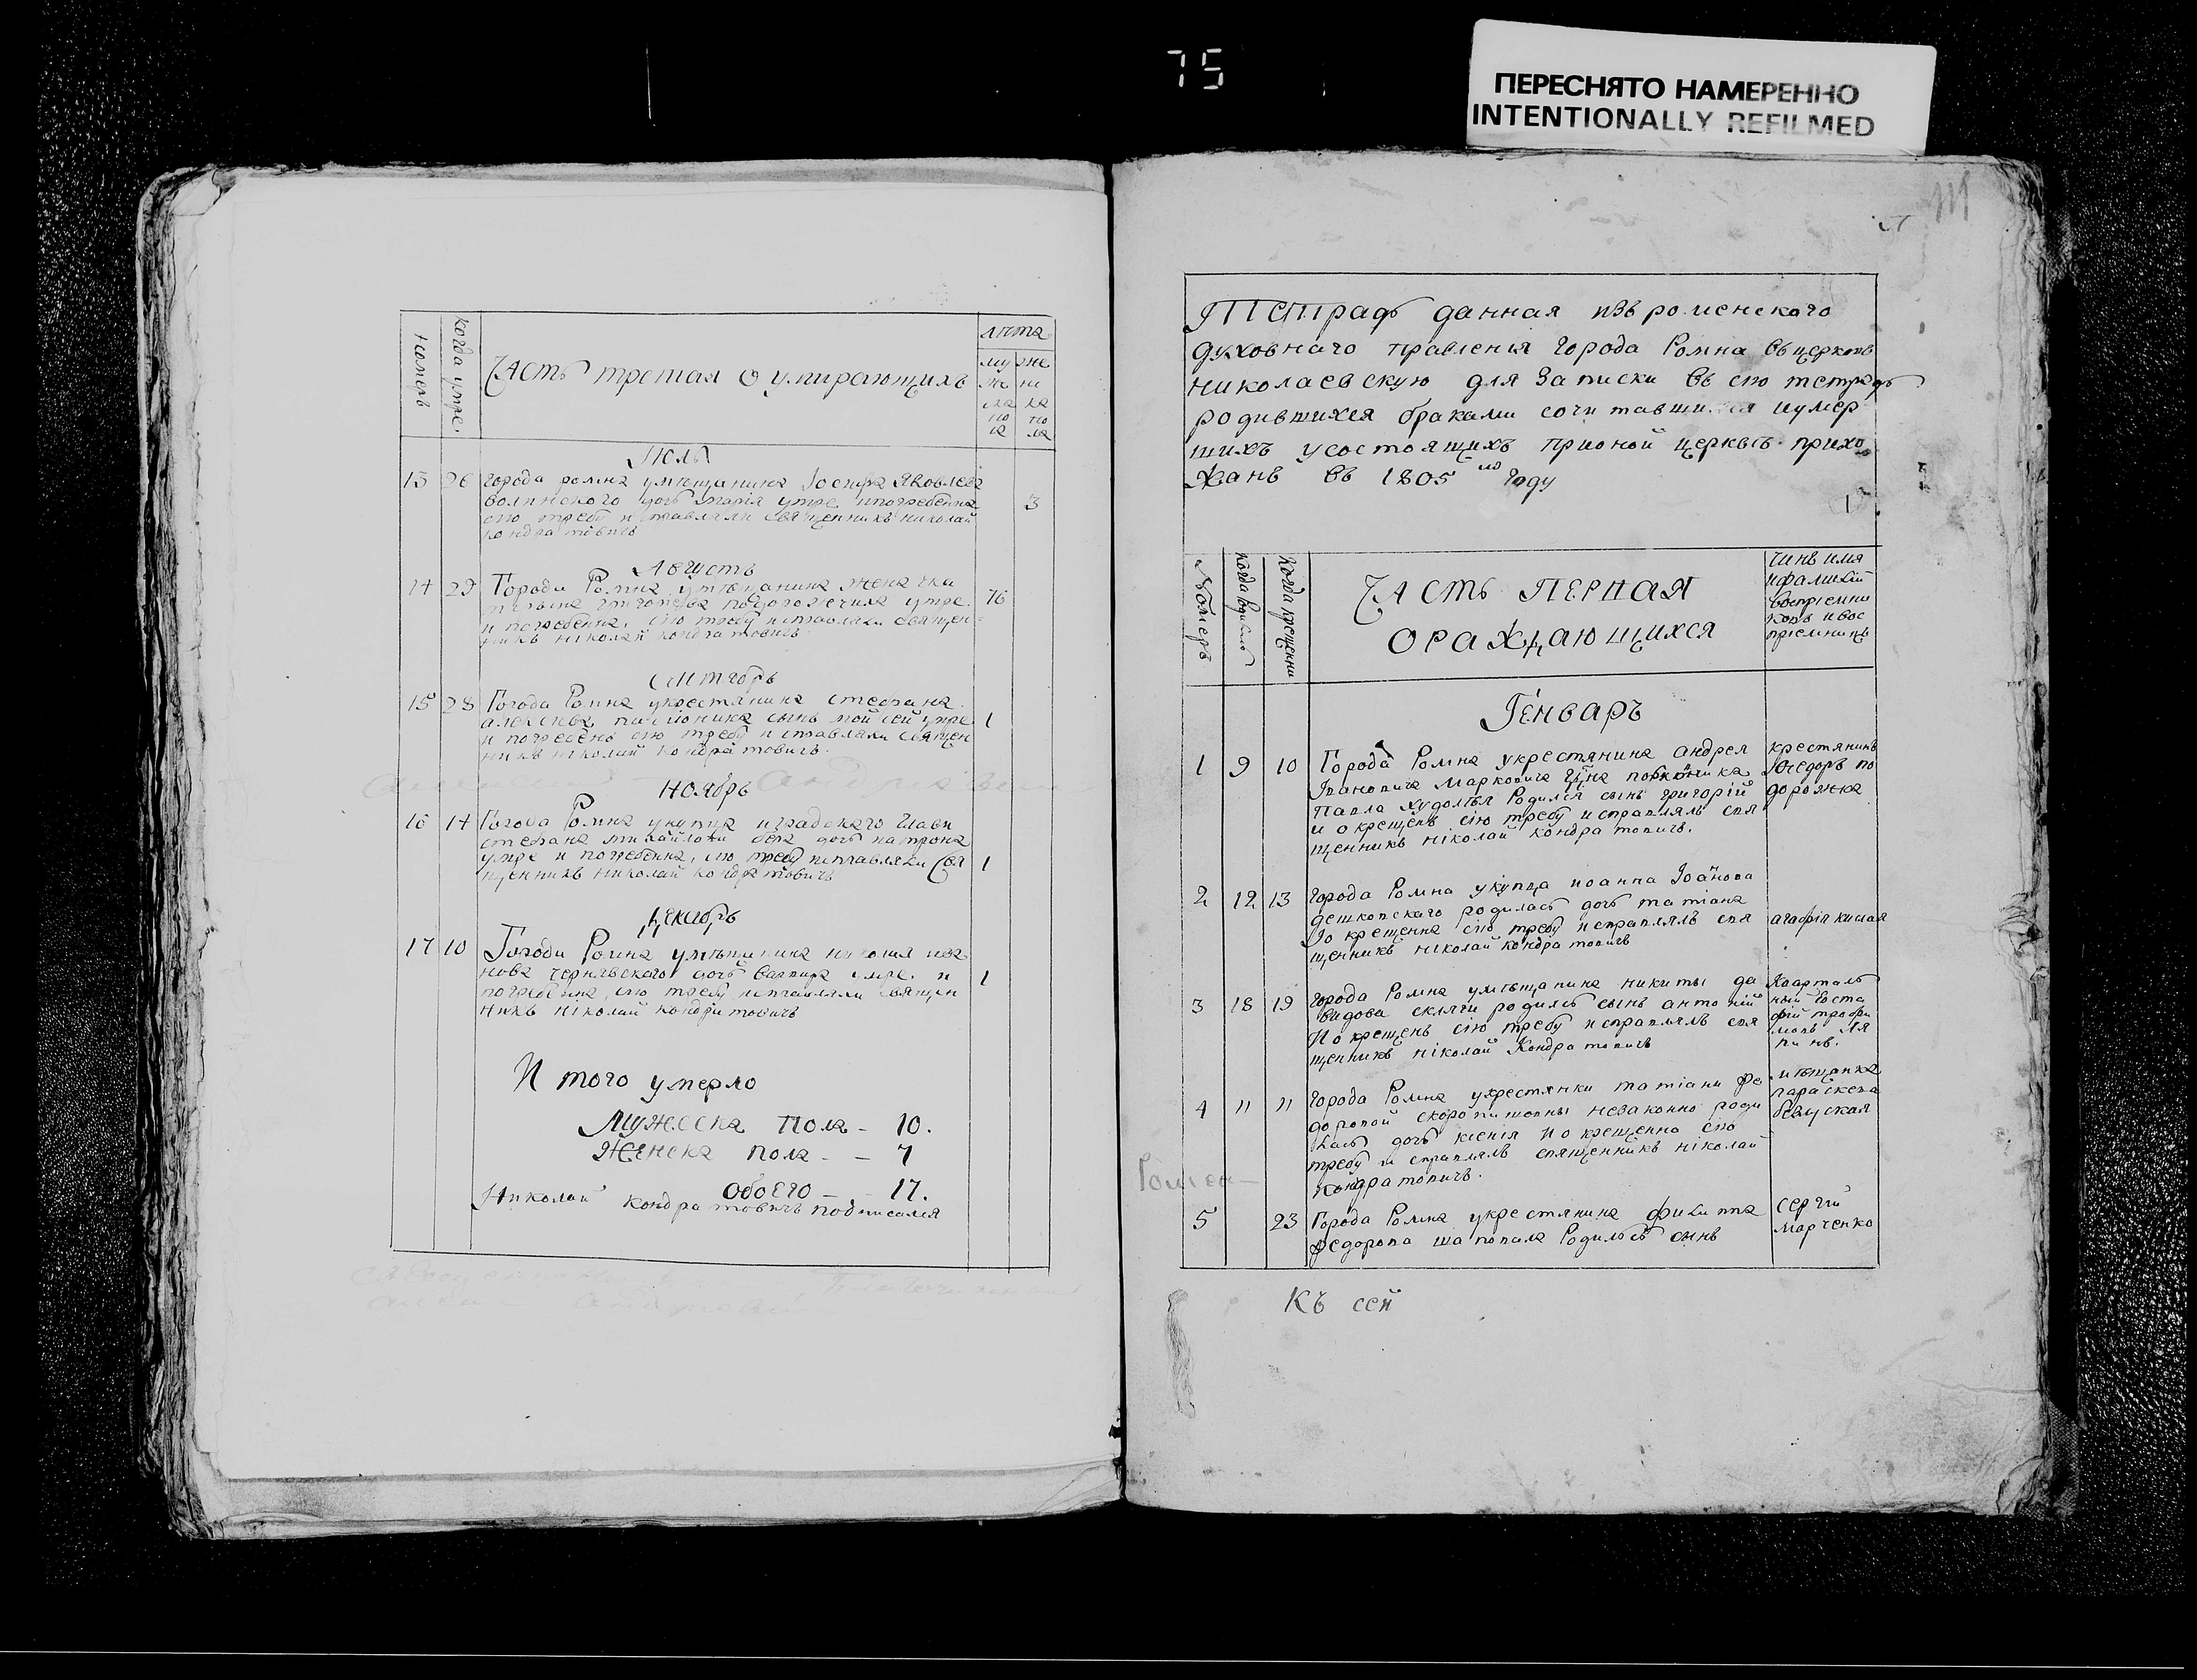 75
ПЕРЕСНЯТО НАМЕРЕННО
INTENTIONALLY REFILMED
номеръ
когда умре.
Часть третая о умирающихъ
лѣта
му же
же на
ска по ла
ска по ла
Июль
13 26 города ромна умѣщанина Іосифа Яковлева
волинского дочь марія умре ипогребенна
сію требу исправляли священникъ николай
кондратовичъ
3
Августъ
14 29 Города Ромна умѣщанина жена
и погребенна, сію требу исправляли священ-
никъ ніколай кондратовичъ
76
Сентябрь
15 28 Города Ромна укрестянина стефана
сынъ мойсей умре
и погребенъ сію требу исправляли священ
никъ ніколай кондратовичъ.
1
Ноябрь
16 14 Города Ромна укупца иградскаго главы
стефана дочь матрона
умре и погребенна, сію требу исправляли свя
щенникъ николай кондратовичъ
1
Декабрь
17 10 Города Ромна умѣщанина ива
нова чернявского дочь варвара умре. и
погребенна, сію требу исправляли священ
никъ ніколай кондратовичъ
1
И того умерло
Мужеска пола - 10.
Женска пола - - 7
Обоего - - 17.
Николай кондратовичъ подписался
Тетрадь данная изъ роменского
духовнаго правленія города Ромна въ церковь
николаевскую для записки въ сію тетрадь
родившихся браками сочитавшихся иумер
шихъ усостоящихъ прионой церквѣ прихо
жанъ въ 1805 мъ году
1
Номеръ
когда родился
Когда крещенны
Часть перпая
ораждающихся
чинъ имя
ифамилій
воспріемни
ковъ ивос
пріемницъ
Генварь
1 9 10 Города Ромна укрестянина андрея крестянинъ
Іпановича Марковича Ѳеодоръ по
Папла худолѣя Родился сынъ григорій дорожка
и окрещенъ сію требу испраплялъ спя
щенникъ ніколай кондратопичъ.
2 12 13 Города Ромна укупца иоанна Іоанова
дешкопскаго родилась дочь татіана
Іокрещенна сію требу испраплялъ спя агафія кислая
щенникъ ніколай кондратопичъ
3 18 19 Города Ромна умѣщанина никиты да Кварталь
видова скляги родилсь сынъ антоній ный Еста
Иокрещенъ сію требу испраплялъ спя фій трофи
щенникъ ніколай Кондратопичъ мопъ Ля
пинъ.
4 11 11 Города Ромна укрестянки татіаны фе мѣщанка
доропой скоропишопны незаконно роди параскева
лась дочь ксенія Иокрещенно сію
требу испраплялъ спященникъ ніколай
Кондратопичъ.
Ромен
5 23 Города Ромна укрестянина филиппа сергій
федоропа шапопала Родилсь сынъ марченко
Къ сей